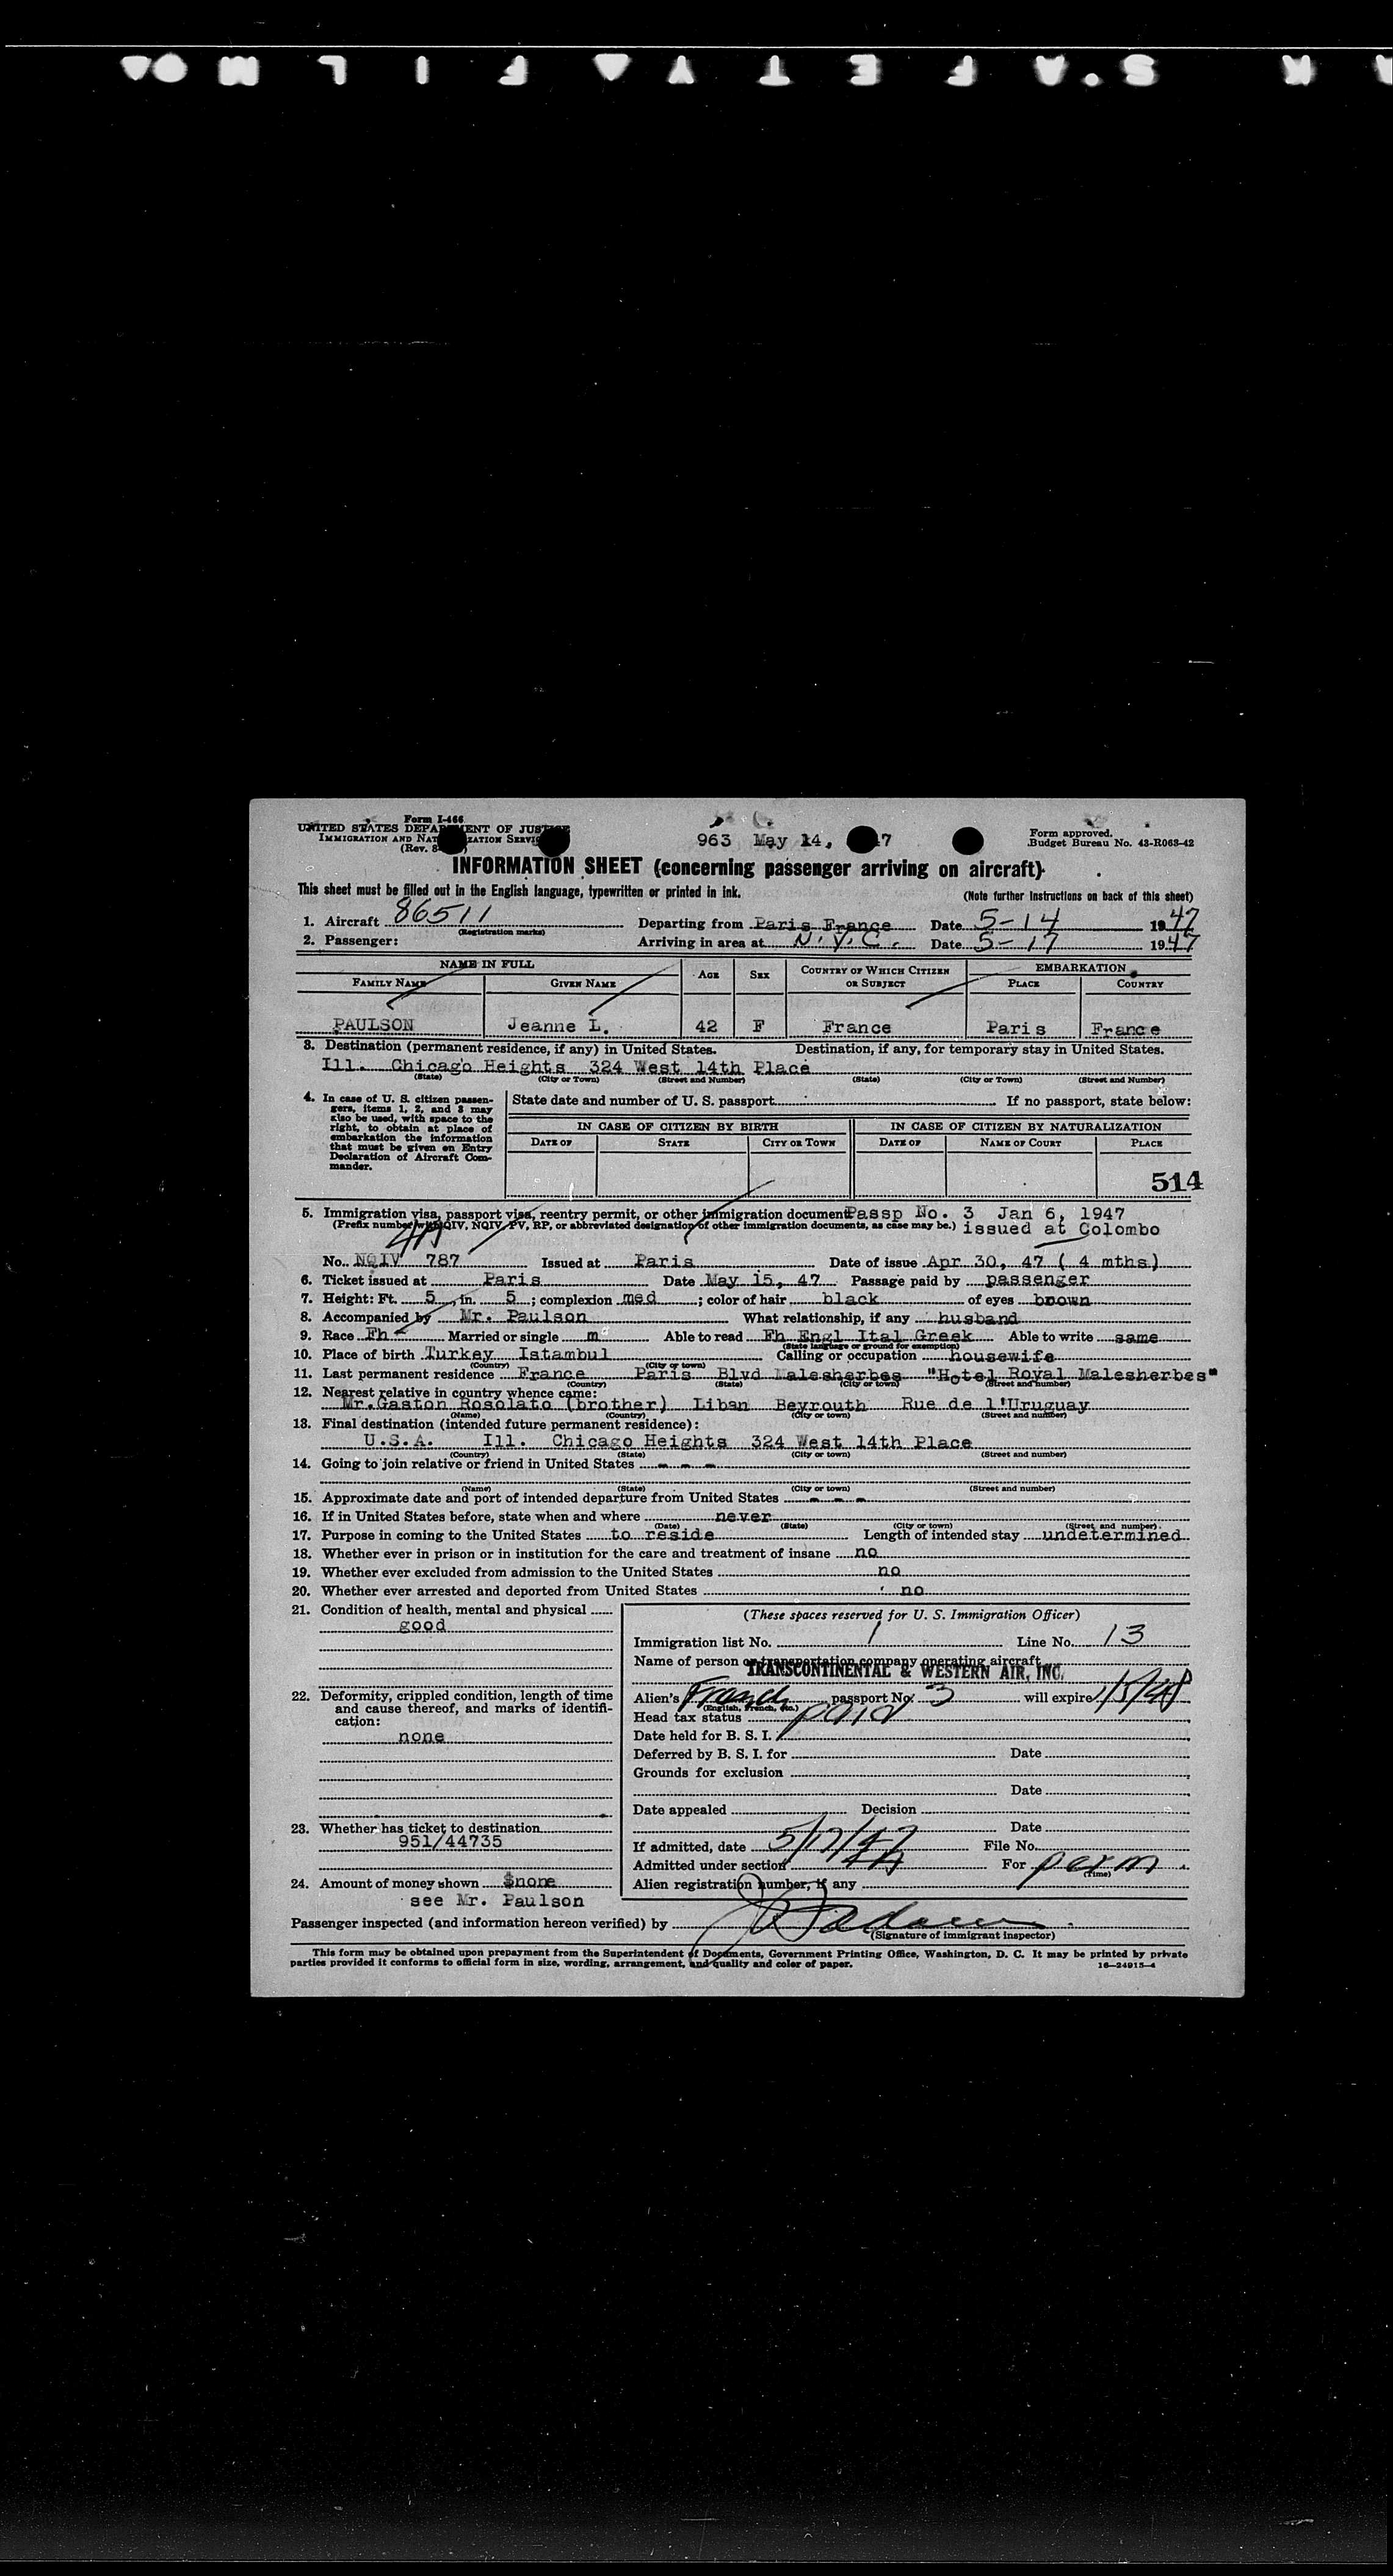 SAFETY FILM
Form I-466
UNITED STATES DEPARTMENT OF JUSTICE
IMMIGRATION AND NATURALIZATION SERVICE
(Rev. 8-
963 May 14, 7
Form approved.
Budget Bureau No. 43-R063-42
INFORMATION SHEET (concerning passenger arriving on aircraft)
This sheet must be filled out in the English language, typewritten or printed in ink.
(Note further instructions on back of this sheet)
1. Aircraft 86511 Departing from Paris France Date 5-14 1947
(Registration marks)
2. Passenger: Arriving in area at N.Y.C. Date 5-17 1947
NAME IN FULL AGE SEX COUNTRY OF WHICH CITIZEN OR SUBJECT EMBARKATION
FAMILY NAME GIVEN NAME PLACE COUNTRY
PAULSON Jeanne L. 42 F France Paris France
3. Destination (permanent residence, if any) in United States. Destination, if any, for temporary stay in United States.
Ill. Chicago Heights 324 West 14th Place
(State) (City or Town) (Street and Number) (State) (City or Town) (Street and Number)
4. In case of U. S. citizen passengers, items 1, 2, and 3 may also be used, with space to the right, to obtain at place of embarkation the information that must be given on Entry Declaration of Aircraft Commander.
State date and number of U. S. passport If no passport, state below:
IN CASE OF CITIZEN BY BIRTH IN CASE OF CITIZEN BY NATURALIZATION
DATE OF STATE CITY OR TOWN DATE OF NAME OF COURT PLACE
514
5. Immigration visa, passport visa, reentry permit, or other immigration document Passp No. 3 Jan 6, 1947
(Prefix number with QIV, NQIV, PV, RP, or abbreviated designation of other immigration documents, as case may be.) issued at Colombo
No. NQIV 787 Issued at Paris Date of issue Apr 30, 47 ( 4 mths)
6. Ticket issued at Paris Date May 15, 47 Passage paid by passenger
7. Height: Ft. 5, in. 5; complexion med; color of hair black of eyes brown
8. Accompanied by Mr. Paulson What relationship, if any husband
9. Race Fh Married or single m Able to read Fh Engl Ital Greek Able to write same
(State language or ground for exemption)
10. Place of birth Turkey Istambul Calling or occupation housewife
(Country) (City or town)
11. Last permanent residence France Paris Blvd Malesherbes "Hotel Royal Malesherbes"
(Country) (State) (City or town) (Street and number)
12. Nearest relative in country whence came:
Mr.Gaston Rosolato (brother) Liban Beyrouth Rue de l'Uruguay
(Name) (Country) (City or town) (Street and number)
13. Final destination (intended future permanent residence):
U.S.A. Ill. Chicago Heights 324 West 14th Place
(Country) (State) (City or town) (Street and number)
14. Going to join relative or friend in United States - - -
(Name) (State) (City or town) (Street and number)
15. Approximate date and port of intended departure from United States - - -
16. If in United States before, state when and where never
(Date) (State) (City or town) (Street and number)
17. Purpose in coming to the United States to reside Length of intended stay undetermined
18. Whether ever in prison or in institution for the care and treatment of insane no
19. Whether ever excluded from admission to the United States no
20. Whether ever arrested and deported from United States no
21. Condition of health, mental and physical
good
22. Deformity, crippled condition, length of time and cause thereof, and marks of identification:
none
23. Whether has ticket to destination
951/44735
24. Amount of money shown $none
see Mr. Paulson
(These spaces reserved for U. S. Immigration Officer)
Immigration list No. 1 Line No. 13
Name of person or transportation company operating aircraft
TRANSCONTINENTAL & WESTERN AIR, INC.
Alien's French passport No. 3 will expire 1/5/48
(English, French, etc.)
Head tax status paid
Date held for B. S. I.
Deferred by B. S. I. for Date
Grounds for exclusion
Date
Date appealed Decision
Date
If admitted, date 5/17/47 File No.
Admitted under section For perm.
(Time)
Alien registration number, if any
Passenger inspected (and information hereon verified) by
(Signature of immigrant inspector)
This form may be obtained upon prepayment from the Superintendent of Documents, Government Printing Office, Washington, D. C. It may be printed by private
parties provided it conforms to official form in size, wording, arrangement, and quality and color of paper.
16—24915-4